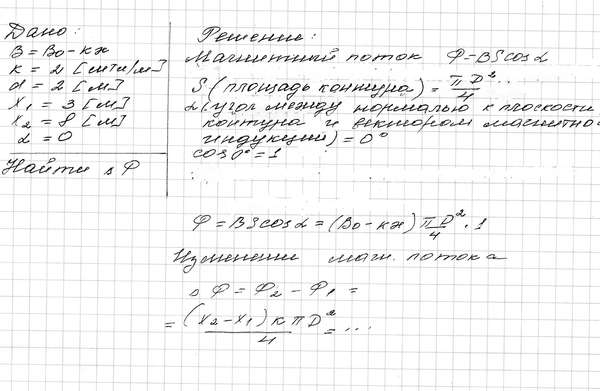 Дано:
B = B₀ - кх
к = 2 [мТл/м]
d = 2 [м]
X₁ = 3 [м]
X₂ = 8 [м]
α = 0
Найти ΔФ
Решение:
Магнитный поток Ф = BS cos α
S (площадь контура) = πD²/4
α (угол между нормалью к плоскости
контура и вектором магнитно
индукции) = 0°
cos 0° = 1
Ф = BS cos α = (B₀ - кх) πD²/4 · 1
Изменение магн. потока
ΔФ = Ф₂ - Ф₁ =
= (X₂ - X₁) к πD²/4 = ...